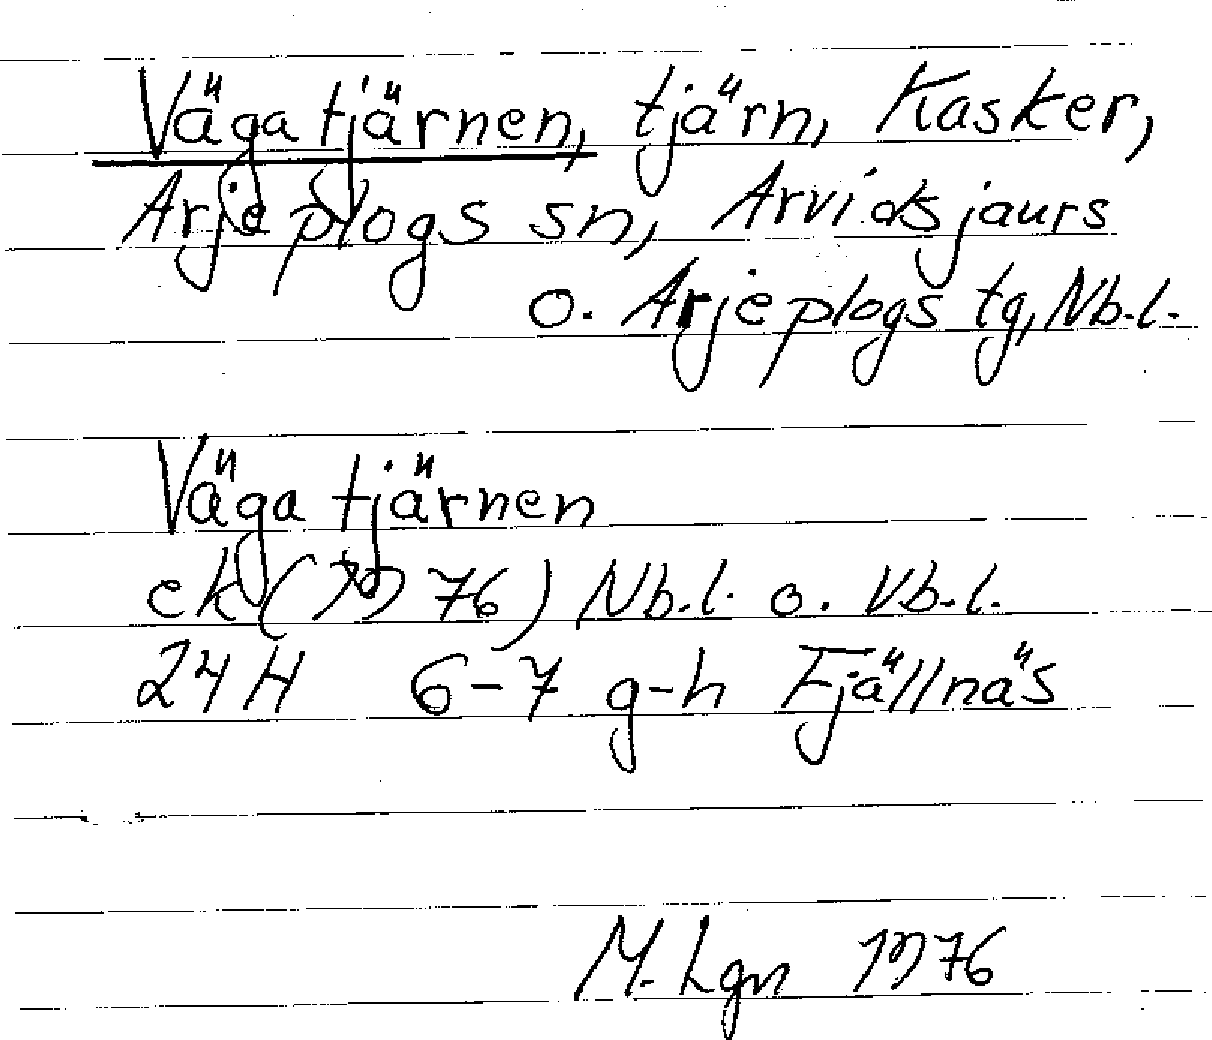 Vägatjärnen, tjärn, Kasker,
Arjeplogs sn, Arvidsjaurs
o. Arjeplogs tg, Nb.l.
Vägatjärnen
ek (1976) Nb.l. o. Vb.l.
24 H 6-7 g-h Fjällnäs
M. Lgn 1976